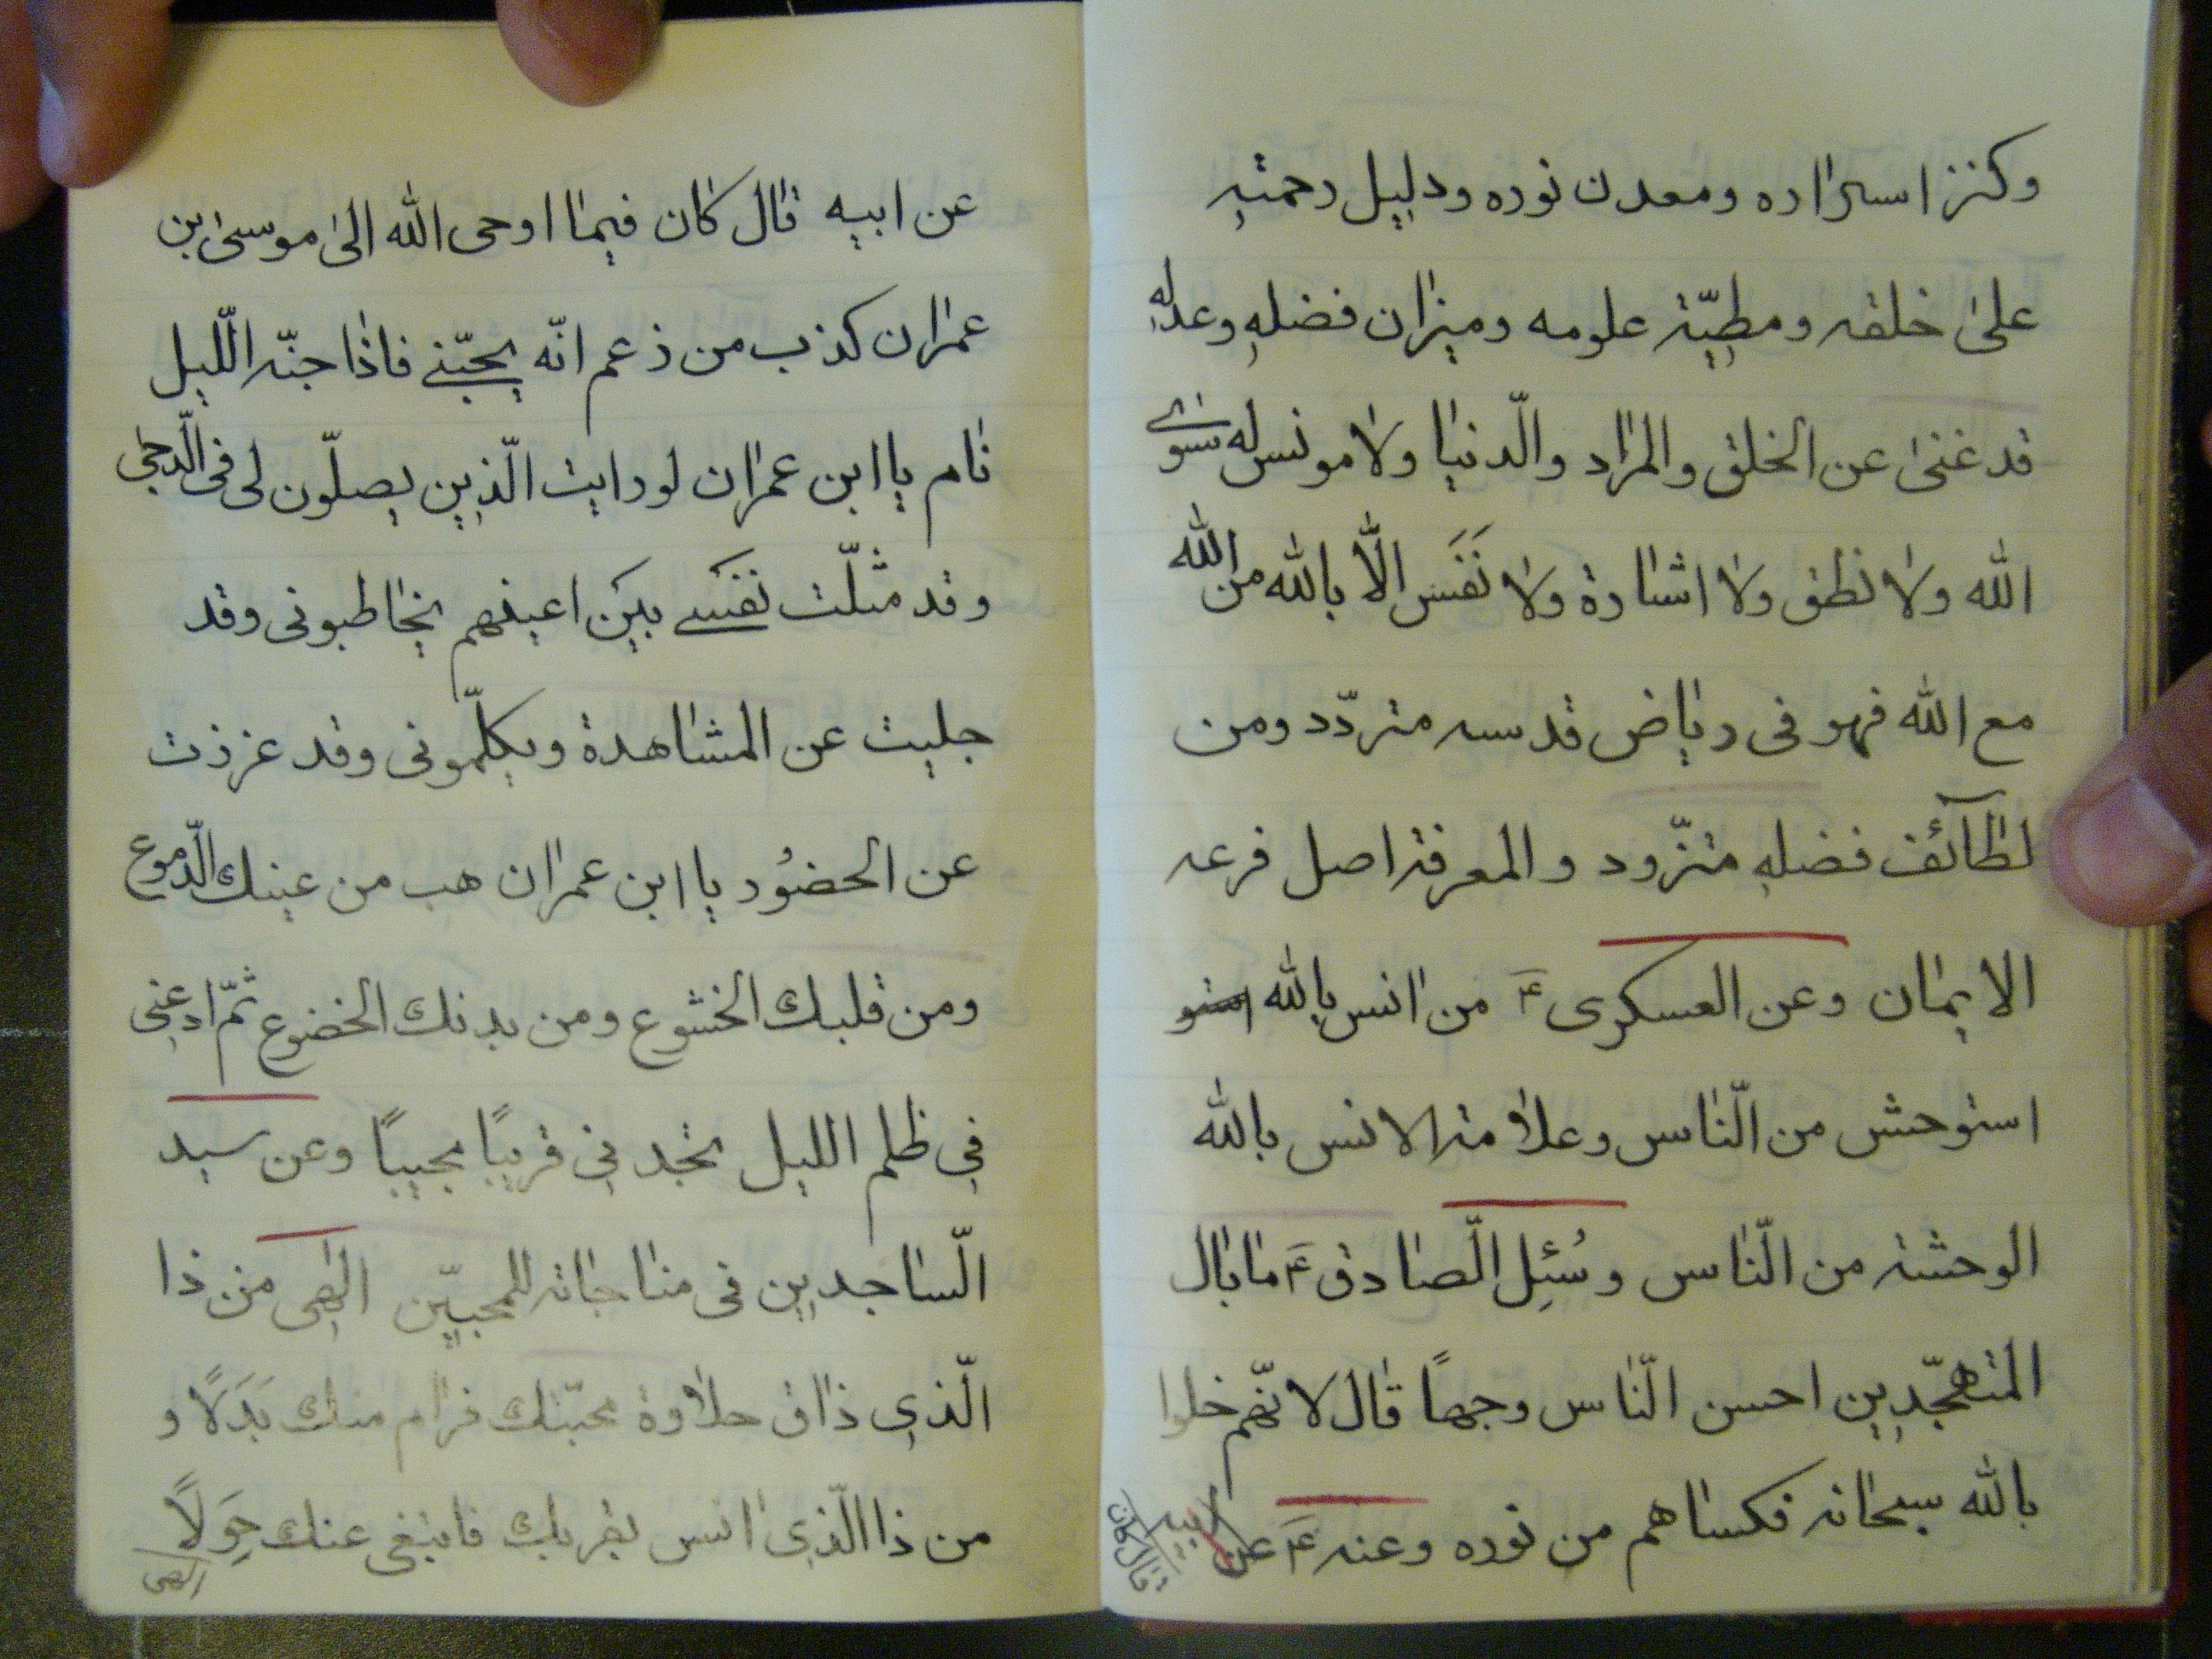 وكنز اسراره ومعدن نوره ودليل رحمته
على خلقه ومطيّة علومه وميزان فضله وعدله
قد غنى عن الخلق والمراد والّدنيا ولا مونس له سوى
الله ولا نطق ولا اشارة ولا نَفَس الّا بالله من الله
مع الله فهو فى رياض قدسه متردّد ومن
لطآئف فضله متزّود والمعرفة اصل فرعه
الايمان وعن العسكرى ع من انس بالله استو
استوحش من الّناس وعلامة الانس بالله
الوحشة من الّناس وسُئِل الّصادق ع ما بال
المتهجّدين احسن الّناس وجهاً قال لانّهم خلوا
بالله سبحانه فكساهم من نوره وعنه ع عن
ابيه قال كان
عن ابيه قال كان فيما اوحى الله الى موسى بن
عمران كذب من زعم انّه يحبّنى فاذا جنّه الّليل
نام يا ابن عمران لو رايت الّذين يصلّون لى فى الّدجى
وقد مثّلت نفسى بين اعينهم يخاطبونى وقد
جليت عن المشاهدة ويكلّمونى وقد عززت
عن الحضُور يا ابن عمران هب من عينك الّدموع
ومن قلبك الخشوع ومن بدنك الخضوع ثمّ ادعنى
فى ظلم الليل تجدنى قريبًا مجيبًا وعن سيد
الّساجدين فى مناجاته للمحبيّن الهى من ذا
الّذى ذاق حلاوة محبّتك فرام منك بَدَلًا و
من ذا الّذى انس بقربك فابتغى عنك حِوَلًا
الهى